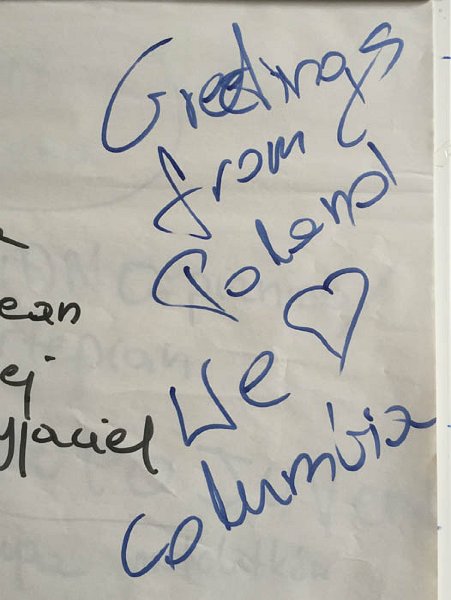 Greetings
from
Poland
We ♡
columbia
ean
ej
yjaciel